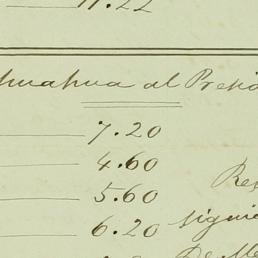 11.22
huahua al Presid
7.20
4.60
5.60
6.20 siguie